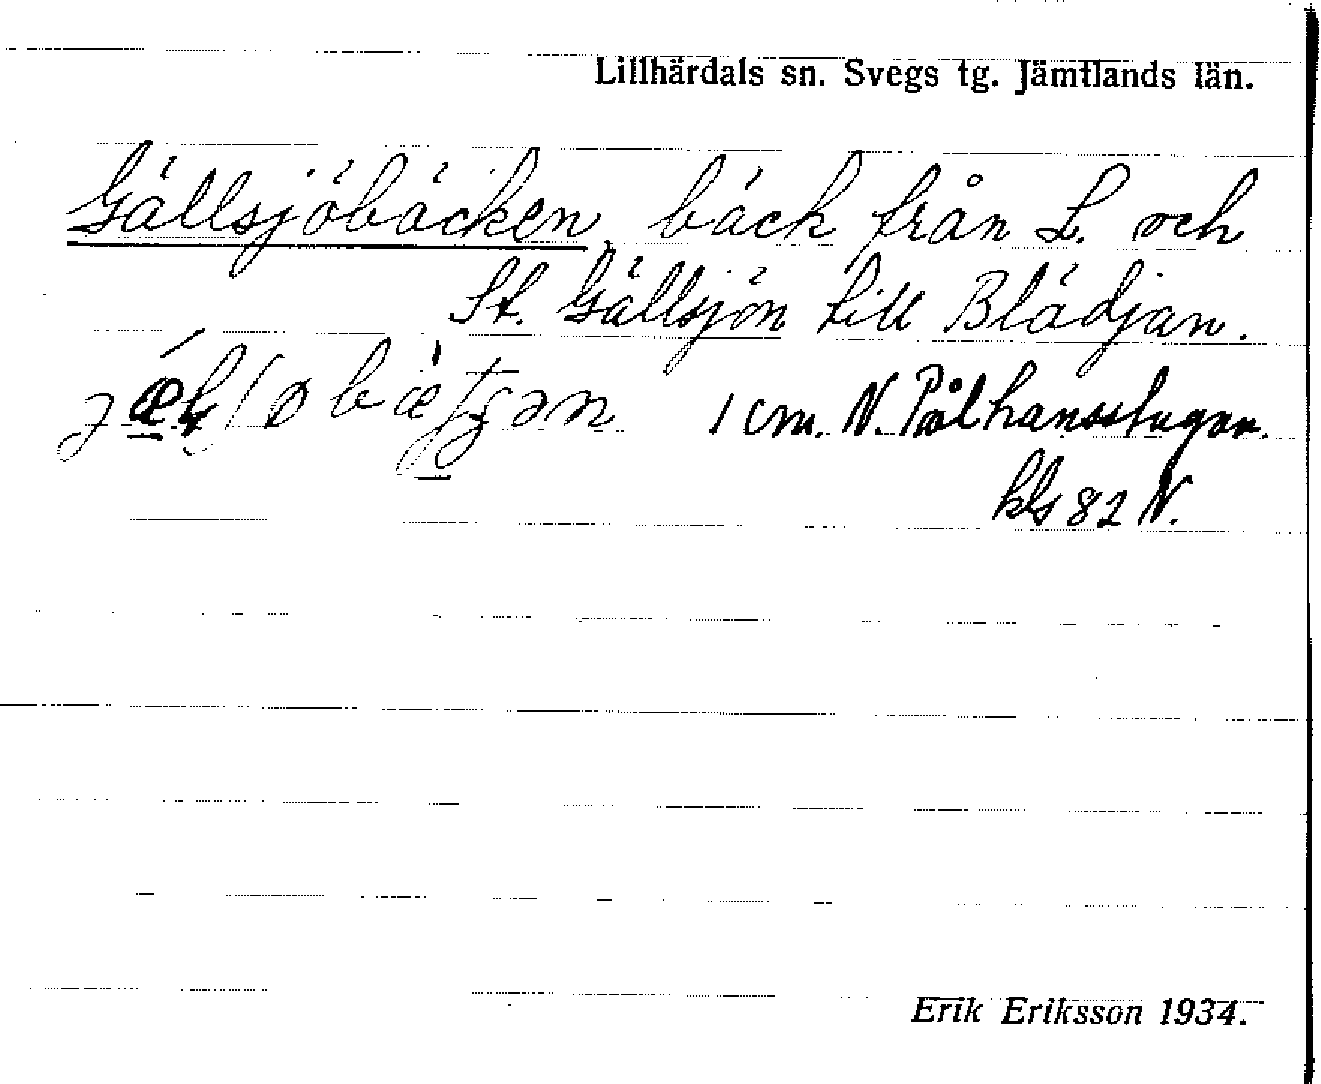 Lillhärdals sn. Svegs tg. Jämtlands län.
Gällsjöbäcken, bäck från L. och
St. Gällsjön till Blädjan.
1 cm. N. Pålhansstugan.
kls 82 N.
Erik Eriksson 1934.